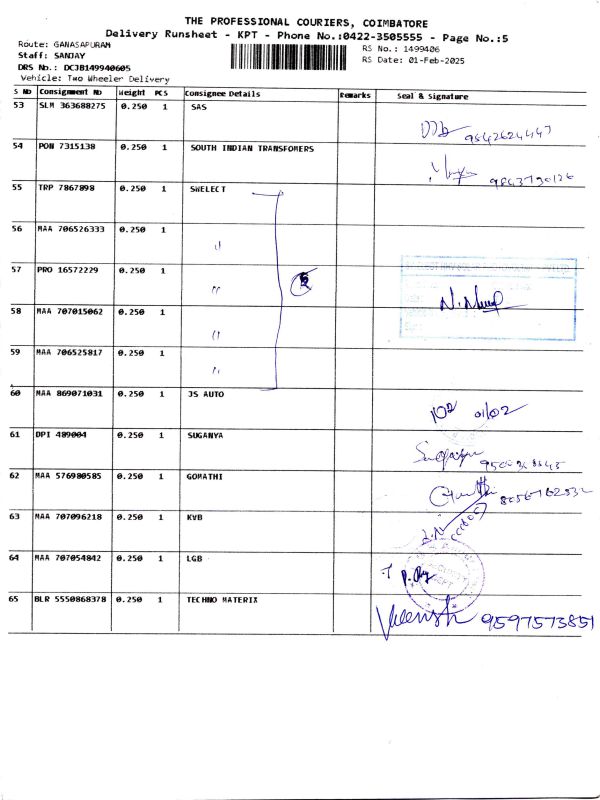 THE PROFESSIONAL COURIERS, COIMBATORE
Delivery Runsheet - KPT - Phone No.:0422-3505555 - Page No.:5
Route: GANASAPURAM
RS No.: 1499406
Staff: SANJAY
RS Date: 01-Feb-2025
DRS No.: DCJB149940605
Vehicle: Two Wheeler Delivery
S No Consignment No Weight PCS Consignee Details Remarks Seal & Signature
53 SLM 363688275 0.250 1 SAS
9542624447
54 PON 7315138 0.250 1 SOUTH INDIAN TRANSFOMERS
55 TRP 7867898 0.250 1 SWELECT
56 MAA 706526333 0.250 1
"
57 PRO 16572229 0.250 1
"
58 MAA 707015062 0.250 1
"
59 MAA 706525817 0.250 1
"
60 MAA 869071031 0.250 1 JS AUTO
01/02
61 DPI 489004 0.250 1 SUGANYA
62 MAA 576980585 0.250 1 GOMATHI
63 MAA 707096218 0.250 1 KVB
64 MAA 707054842 0.250 1 LGB
65 BLR 5550868378 0.250 1 TECHNO MATERIX
9597573851